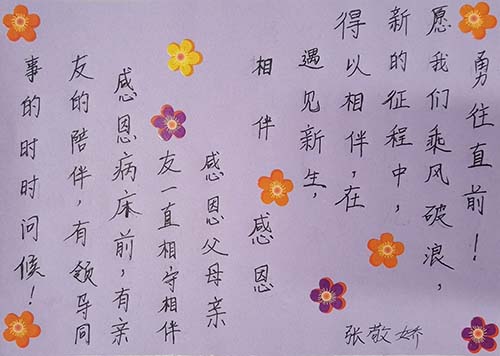 相伴 感恩
感恩父母亲
友一直相守相伴
感恩病床前,有亲
友的陪伴,有领导同
事的时时问候!
遇见新生,
得以相伴,在
新的征程中,
愿我们乘风破浪,
勇往直前!
张敬娇